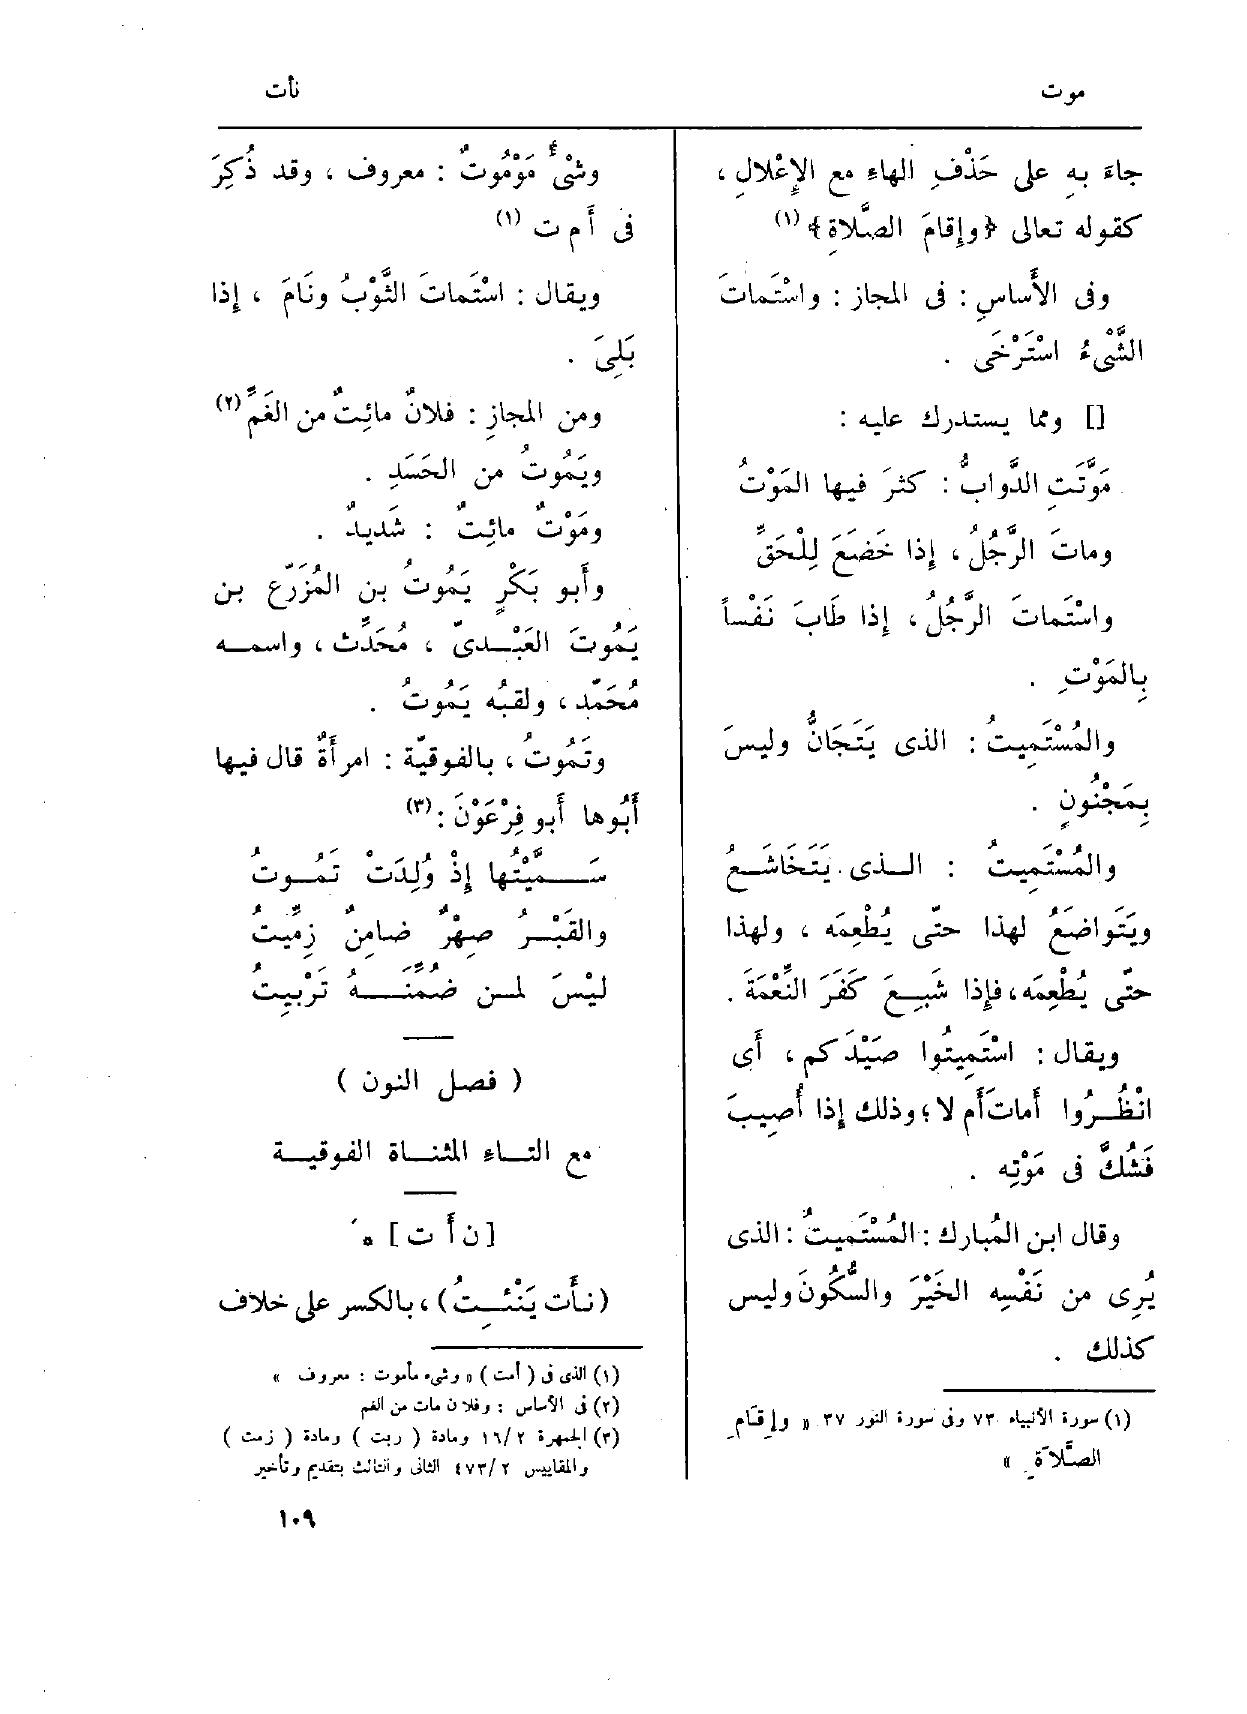 موت
نأت
جاءَ بهِ على حَذْفِ الهاءِ مع الإِعْلالِ ،
كقوله تعالى ﴿وإِقامَ الصَّلاةِ﴾ (١)
وفى الأَساسِ : فى المجاز : واسْتَماتَ
الشَّىْءُ اسْتَرْخَى .
[] ومما يستدرك عليه :
مَوَّتَتِ الدَّوابُّ : كثرَ فيها المَوْتُ
وماتَ الرَّجُلُ ، إِذا خَضَعَ لِلْحَقِّ
واسْتَماتَ الرَّجُلُ ، إِذا طَابَ نَفْساً
بِالمَوْتِ .
والمُسْتَمِيتُ : الذى يَتَجَانُّ وليسَ
بِمَجْنُونٍ .
والمُسْتَمِيتُ : الـذى يَتَخَاشَـعُ
ويَتَواضَعُ لهذا حتّى يُطْعِمَه ، ولهذا
حتّى يُطْعِمَه، فإِذا شَبِـعَ كَفَرَ النِّعْمَةَ .
ويقال : اسْتَمِيتُوا صَيْدَكم ، أَى
انْظُـرُوا أَماتَ أَم لا ؛ وذلك إِذا أُصِيبَ
فَشُكَّ فى مَوْتِه .
وقال ابن المُبارك : المُسْتَمِيتُ : الذى
يُرِى من نَفْسِه الخَيْرَ والسُّكُونَ وليس
كذلك .
(١) سورة الأنبياء ٧٣ وفى سورة النور ٣٧ « وإِقَامِ
الصَّلاَةِ »
وشْىٌ مَوْمُوتٌ : معروف ، وقد ذُكِرَ
فى أَ م ت (١)
ويقال : اسْتَماتَ الثَّوْبُ ونَامَ ، إِذا
بَلِىَ .
ومن المجازِ : فلانٌ مائِتٌ من الغَمِّ (٢)
ويَمُوتُ من الحَسَدِ .
ومَوْتٌ مائِتٌ : شَديدٌ .
وأَبو بَكْرٍ يَمُوتُ بن المُزَرّعِ بن
يَمُوتَ العَبْـدىّ ، مُحَدِّث ، واسمـه
مُحَمّد ، ولقبُه يَمُوتُ .
وتَمُوتُ ، بالفوقيّة : امرأَةٌ قال فيها
أَبُوها أَبو فِرْعَوْنَ : (٣)
سَـــمَّيْتُها إِذْ وُلِدَتْ تَمُـوتُ
والقَبْـرُ صِهْرٌ ضامِنٌ زِمِّيتُ
ليْسَ لمـن ضُمِّنَـــهُ تَرْبِيتُ
( فصل النون )
مع التـاء المثنـاة الفوقيـة
[ ن أَ ت ] *
(نـأَت يَنْئِــتُ) ، بالكسر على خلاف
(١) الذى فى ( أمت ) « وشىء مأموت : معروف »
(٢) فى الأساس : وفلان مات من الغم
(٣) الجمهرة ٢/ ١٦ ومادة ( ربت ) ومادة ( زمت )
والمقاييس ٢/ ٤٧٣ الثانى والثالث بتقديم وتأخير
١٠٩